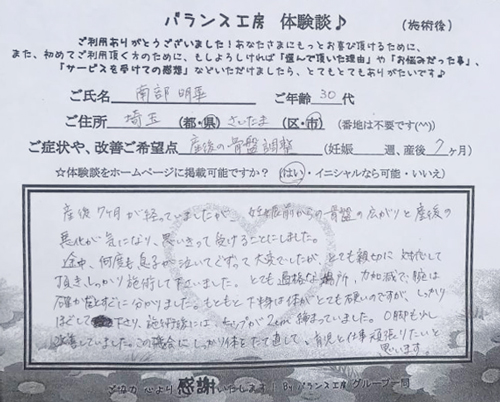 バランス工房 体験談♪ (施術後)
ご利用ありがとうございました!あなたさまにもっとお喜び頂けるために、
また、初めてご利用頂く方のために、もしよろしければ「選んで頂いた理由」や「お悩みだった事」、
「サービスを受けての感想」などいただけましたら、とてもとてもありがたいです♪
ご氏名 南部 明華 ご年齢 30 代
ご住所 埼玉 (都・県) さいたま (区・市) (番地は不要です(^^))
ご症状や、改善ご希望点 産後の骨盤調整 (妊娠 週、産後 7ヶ月)
☆体験談をホームページに掲載可能ですか? (はい・イニシャルなら可能・いいえ)
産後7ヶ月が経っていましたが、妊娠前からの骨盤の広がりと産後の
悪化が気になり、思いきって受けることにしました。
途中、何度も息子が泣いてぐずって大変でしたが、とても親切に対応して
頂き、しっかり施術して下さいました。とても適格な場所、力加減で、腕は
確かだとすぐに分かりました。もともと下半身は体がとても硬いのですが、しっかり
ほぐして下さり、施術後には、ヒップが2cm締まっていました。O脚も少し
改善していました。この機会にしっかり体をたて直して、育児と仕事頑張りたいと
思います。
ご協力 心より 感謝いたします! By バランス工房グループ一同